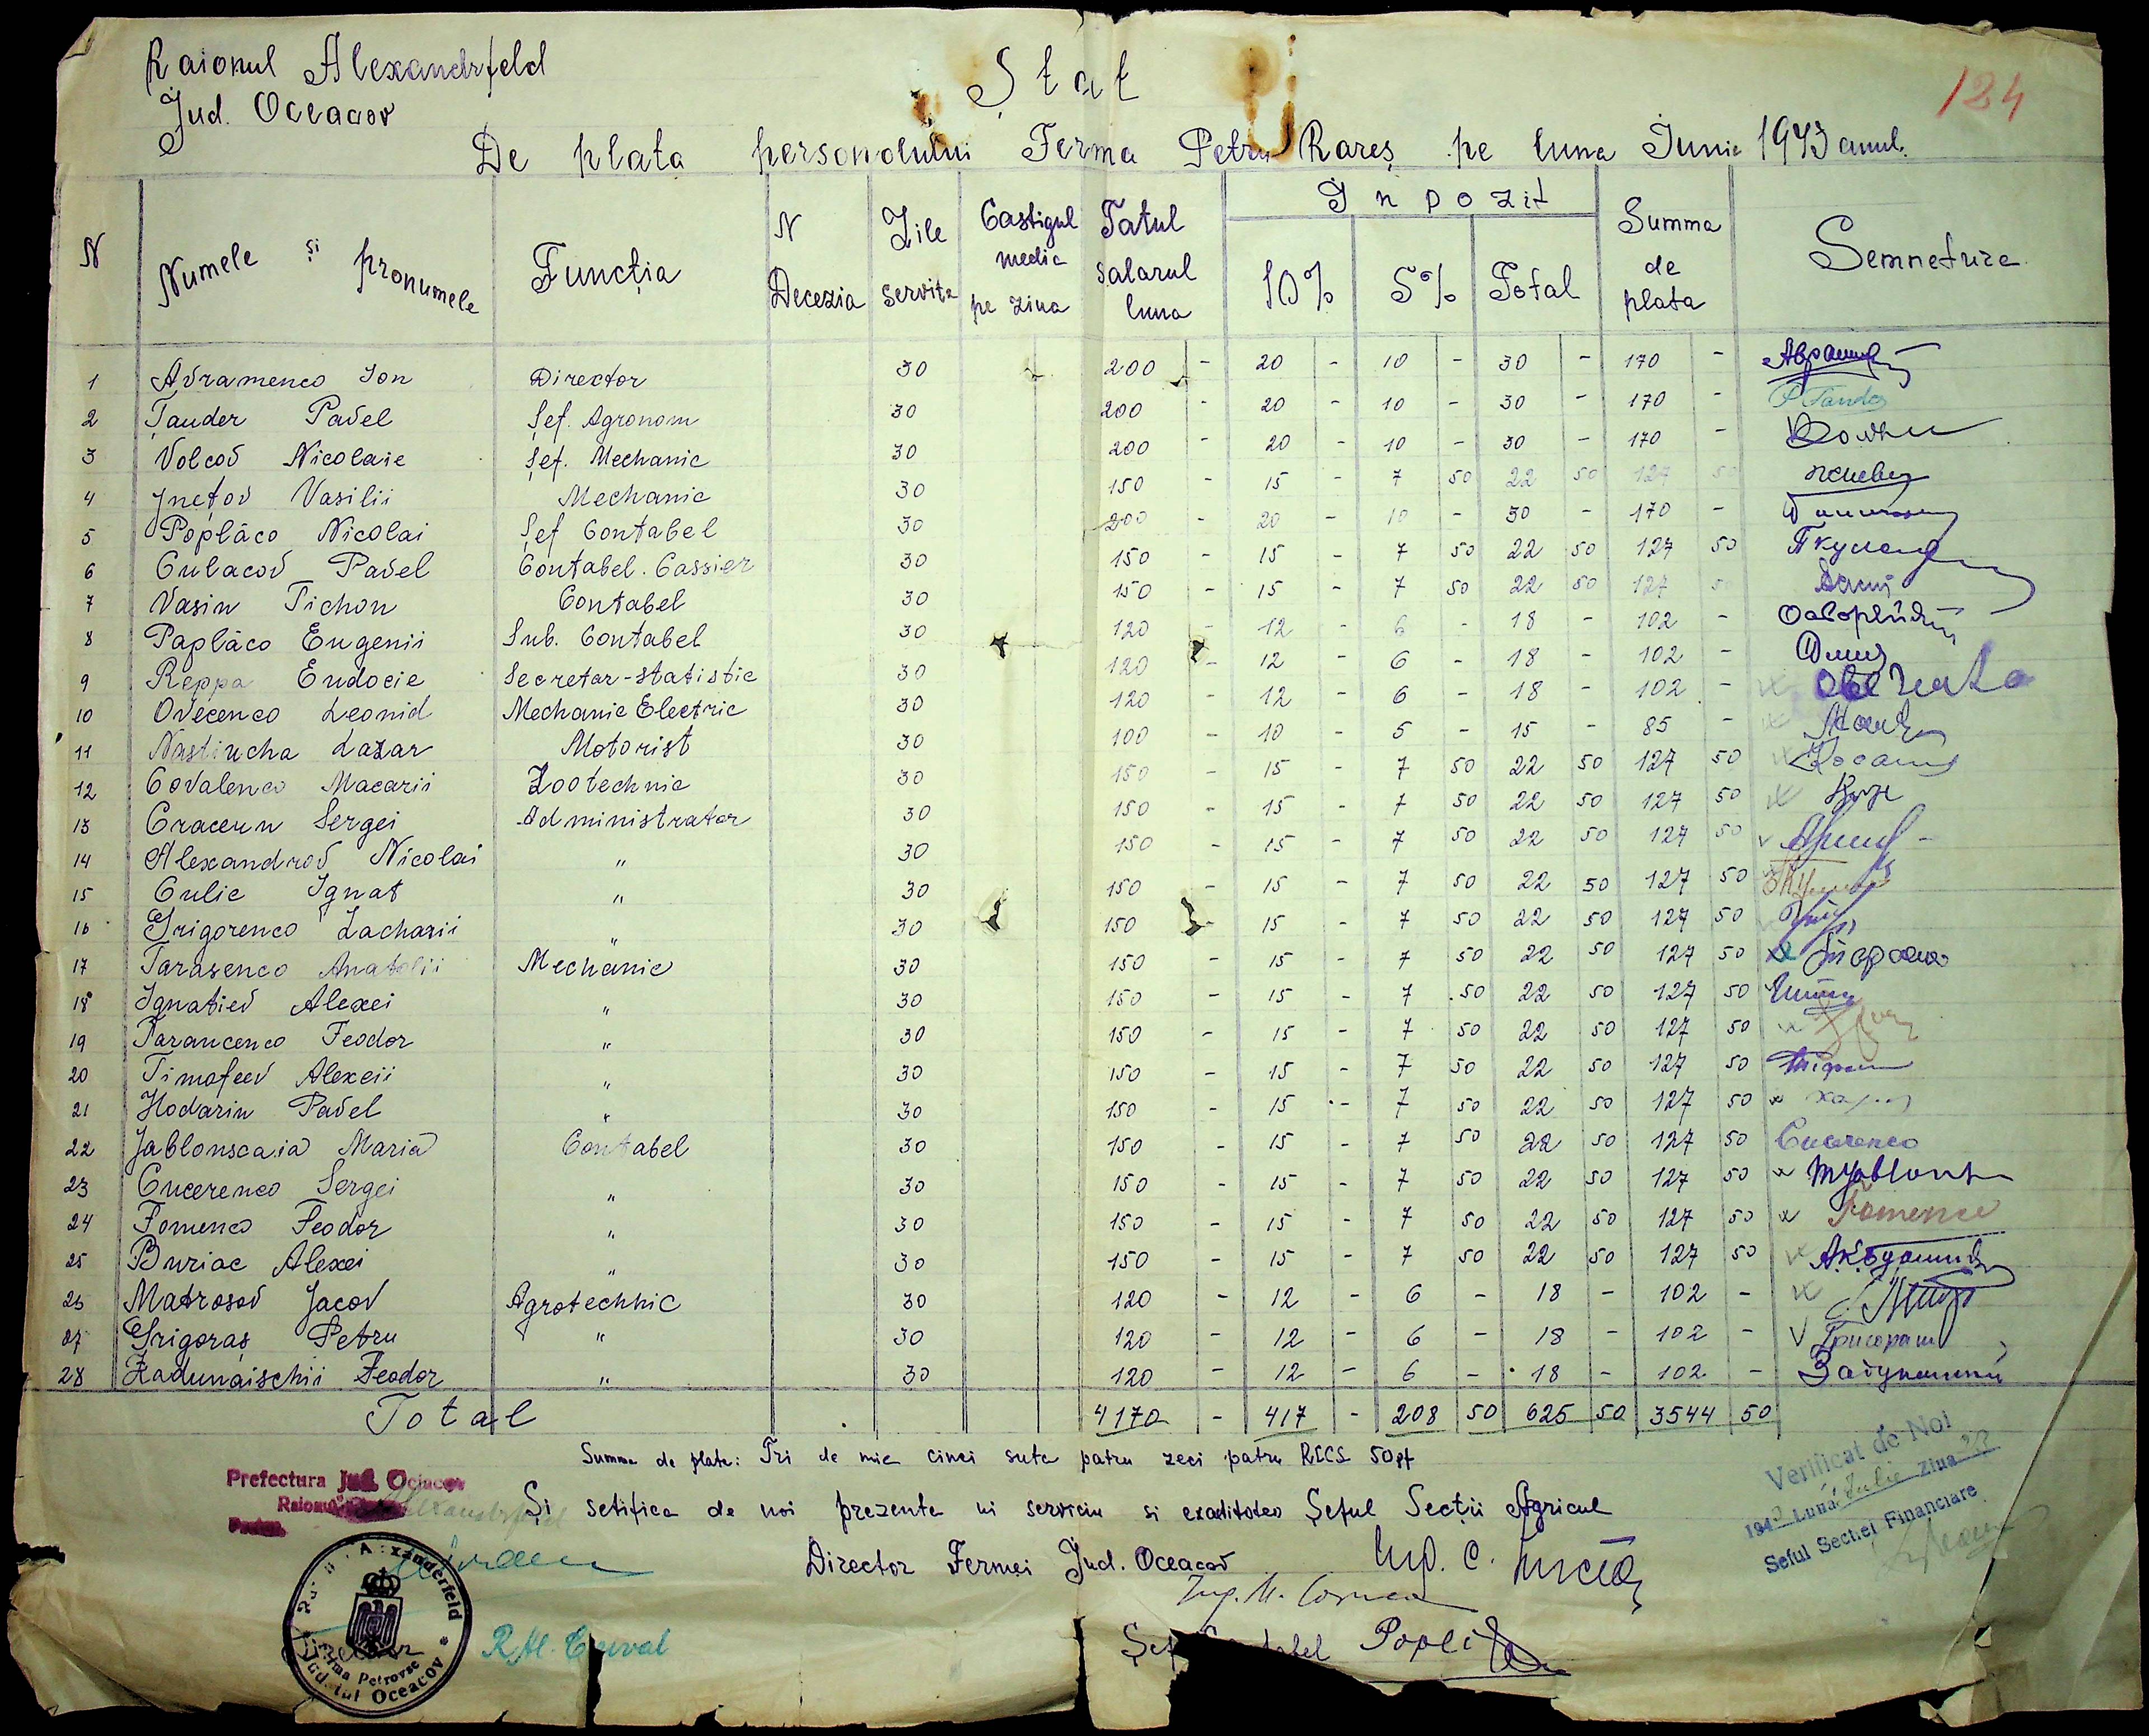 Raionul Alexandrfeld
Jud. Oceacov
124
Ștat
De plata personolului Ferma Petru Rareș pe luna Iunie 1943 anul.
N Numele și pronumele Funcția N Decezia Zile servite Castigul medie pe ziua Tatul salarul luna Inpozit 10% 5% Total Summa de plata Semnetura
1 Avramenco Ion Director 30 200 - 20 - 10 - 30 - 170 -
2 Țauder Pavel Șef. Agronom 30 200 - 20 - 10 - 30 - 170 -
3 Volcov Nicolaie Șef. Mechanic 30 200 - 20 - 10 - 30 - 170 -
4 Inețov Vasilii Mechanic 30 150 - 15 - 7 50 22 50 127 50
5 Poplăco Nicolai Șef Contabel 30 200 - 20 - 10 - 30 - 170 -
6 Culacov Pavel Contabel. Cassier 30 150 - 15 - 7 50 22 50 127 50
7 Vasin Tichon Contabel 30 150 - 15 - 7 50 22 50 127 50
8 Paplăco Eugenii Sub. Contabel 30 120 - 12 - 6 - 18 - 102 -
9 Reppa Eudocie Secretar-statistic 30 120 - 12 - 6 - 18 - 102 -
10 Ovecenco Leonid Mechanic Electric 30 120 - 12 - 6 - 18 - 102 -
11 Nastiucha Lazar Motorist 30 100 - 10 - 5 - 15 - 85 -
12 Covalenco Macarii Zootechnic 30 150 - 15 - 7 50 22 50 127 50
13 Craceun Sergei Administrator 30 150 - 15 - 7 50 22 50 127 50
14 Alexandrov Nicolai " 30 150 - 15 - 7 50 22 50 127 50
15 Culic Ignat " 30 150 - 15 - 7 50 22 50 127 50
16 Grigorenco Zacharii " 30 150 - 15 - 7 50 22 50 127 50
17 Tarasenco Anatolii Mechanic 30 150 - 15 - 7 50 22 50 127 50
18 Ignatiev Alexei " 30 150 - 15 - 7 50 22 50 127 50
19 Tarancenco Feodor " 30 150 - 15 - 7 50 22 50 127 50
20 Timofeev Alexeii " 30 150 - 15 - 7 50 22 50 127 50
21 Hodarin Pavel " 30 150 - 15 - 7 50 22 50 127 50
22 Jablonscaia Maria Contabel 30 150 - 15 - 7 50 22 50 127 50 Cucerenco
23 Cucerenco Sergei " 30 150 - 15 - 7 50 22 50 127 50
24 Fomenco Feodor " 30 150 - 15 - 7 50 22 50 127 50 Fomence
25 Buriac Alexei " 30 150 - 15 - 7 50 22 50 127 50
26 Matrosov Jacov Agrotechnic 30 120 - 12 - 6 - 18 - 102 -
27 Grigoraș Petru " 30 120 - 12 - 6 - 18 - 102 - Григораш
28 Zadunaischii Feodor " 30 120 - 12 - 6 - 18 - 102 -
Total 4170 - 417 - 208 50 625 50 3544 50
Summa de plata: Tri de mie cinci sute patru zeci patru RKKS 50 pf
Prefectura Jud. Ociacov
Raionul Alexandrfeld
Și setifica de noi prezenta in serviciu si exaditatea Șeful Secții Agricul
Director Fermei Jud. Oceacov Ing. C.
Ing. M. Cornea
Șef Contabel
Verificat de Noi
1943 Luna Iulie Ziua
Seful Sectiei Financiare
Alexanderfeld
Ferma Petrovsc
Judetul Oceacov